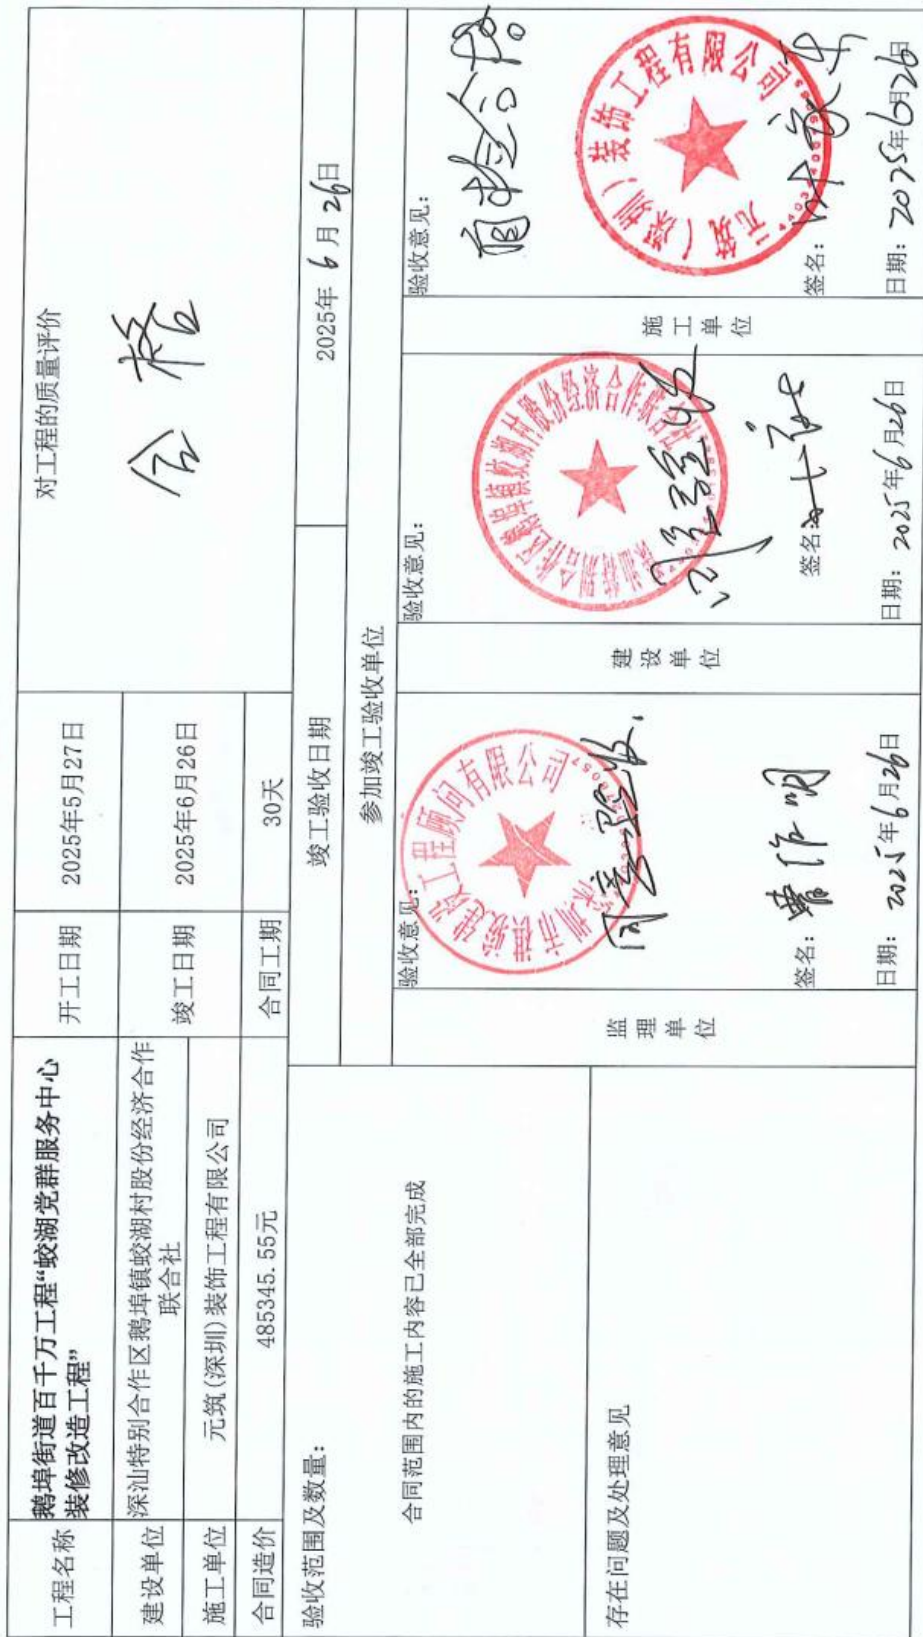 工程名称
鹅埠街道百千万工程“蛟湖党群服务中心
装修改造工程”
开工日期
2025年5月27日
对工程的质量评价
合格
建设单位
深汕特别合作区鹅埠镇蛟湖村股份经济合作
联合社
竣工日期
2025年6月26日
施工单位
元筑(深圳)装饰工程有限公司
合同造价
485345.55元
合同工期
30天
验收范围及数量:
合同范围内的施工内容已全部完成
存在问题及处理意见
竣工验收日期
2025年6月26日
参加竣工验收单位
监理单位
验收意见:
同意验收.
工程顾问有限公司
签名:
日期: 2025年6月26日
建设单位
验收意见:
同意验收
深汕特别合作区鹅埠镇蛟湖村股份经济合作联合社
签名:
日期: 2025年6月26日
施工单位
验收意见:
自检合格。
元筑(深圳)装饰工程有限公司
签名:
日期: 2025年6月26日